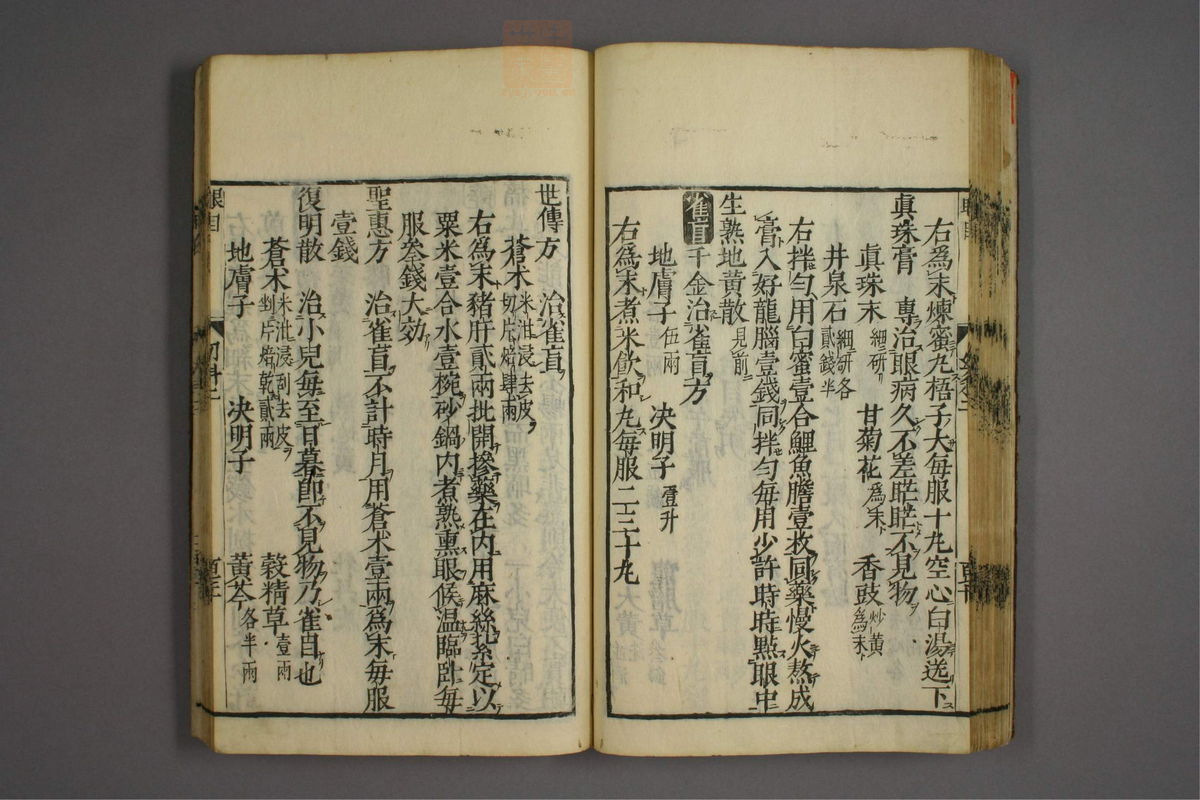 右爲末煉蜜丸梧子大每服十丸空心白湯送下
眞珠膏　專治眼病久不差䀮䀮不見物
眞珠末細研　甘菊花爲末　香豉炒黃爲末
井泉石細研各貳錢半
右拌勻用白蜜壹合鯉魚膽壹枚同藥慢火熬成
膏入好龍腦壹錢同拌勻每用少許時時點眼中
生熟地黃散見前
雀盲千金治雀盲方
地膚子伍兩　決明子壹升
右爲末煮米飮和丸每服二三十丸
世傳方　治雀盲
蒼朮米泔浸去皮切片焙肆兩
右爲末猪肝貳兩批開摻藥在內用麻絲紮定以
粟米壹合水壹椀砂鍋內煮熟熏眼候温臨臥每
服叄錢大効
聖惠方　治雀盲不計時月用蒼朮壹兩爲末每服
壹錢
復明散　治小兒每至日暮卽不見物乃雀目也
蒼朮米泔浸刮去皮剉片焙乾貳兩　穀精草壹兩
地膚子　決明子　黃芩各半兩
眼目